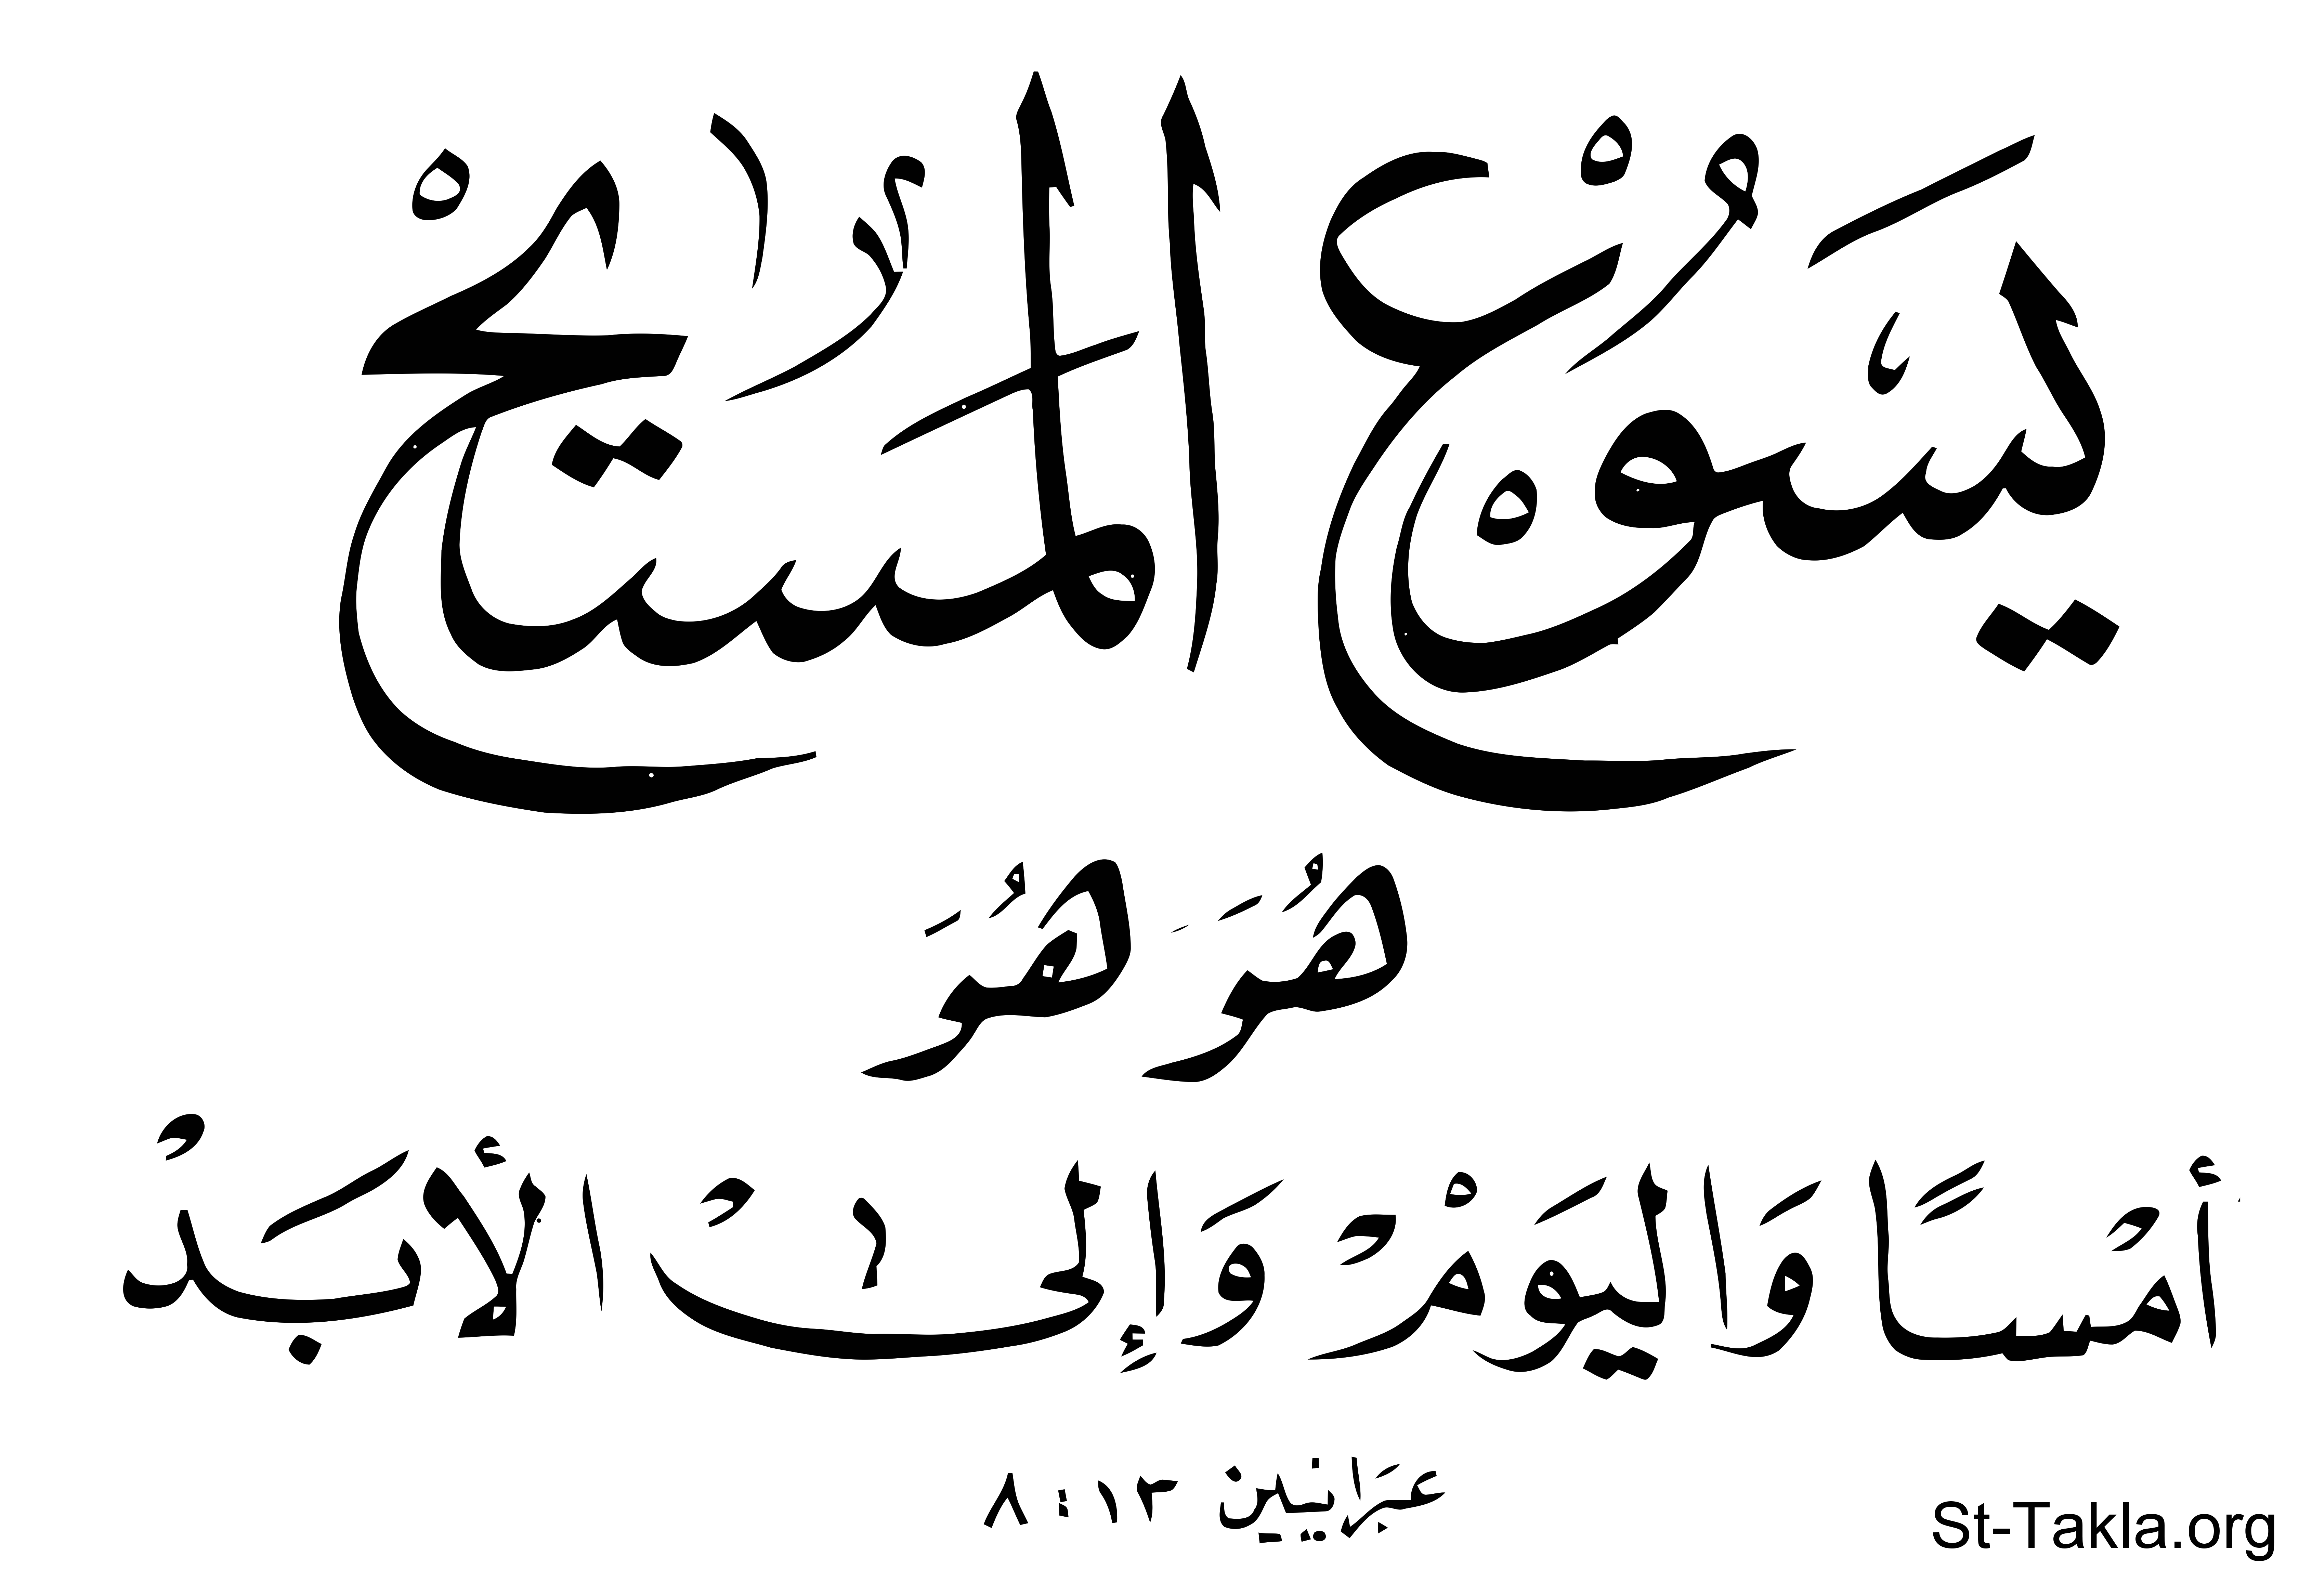 يَسُوعُ الْمَسِيحُ
هُوَ هُوَ
أَمْسًا وَالْيَوْمَ وَإِلَى الأَبَدِ
عبرانيين ١٣ : ٨
St-Takla.org